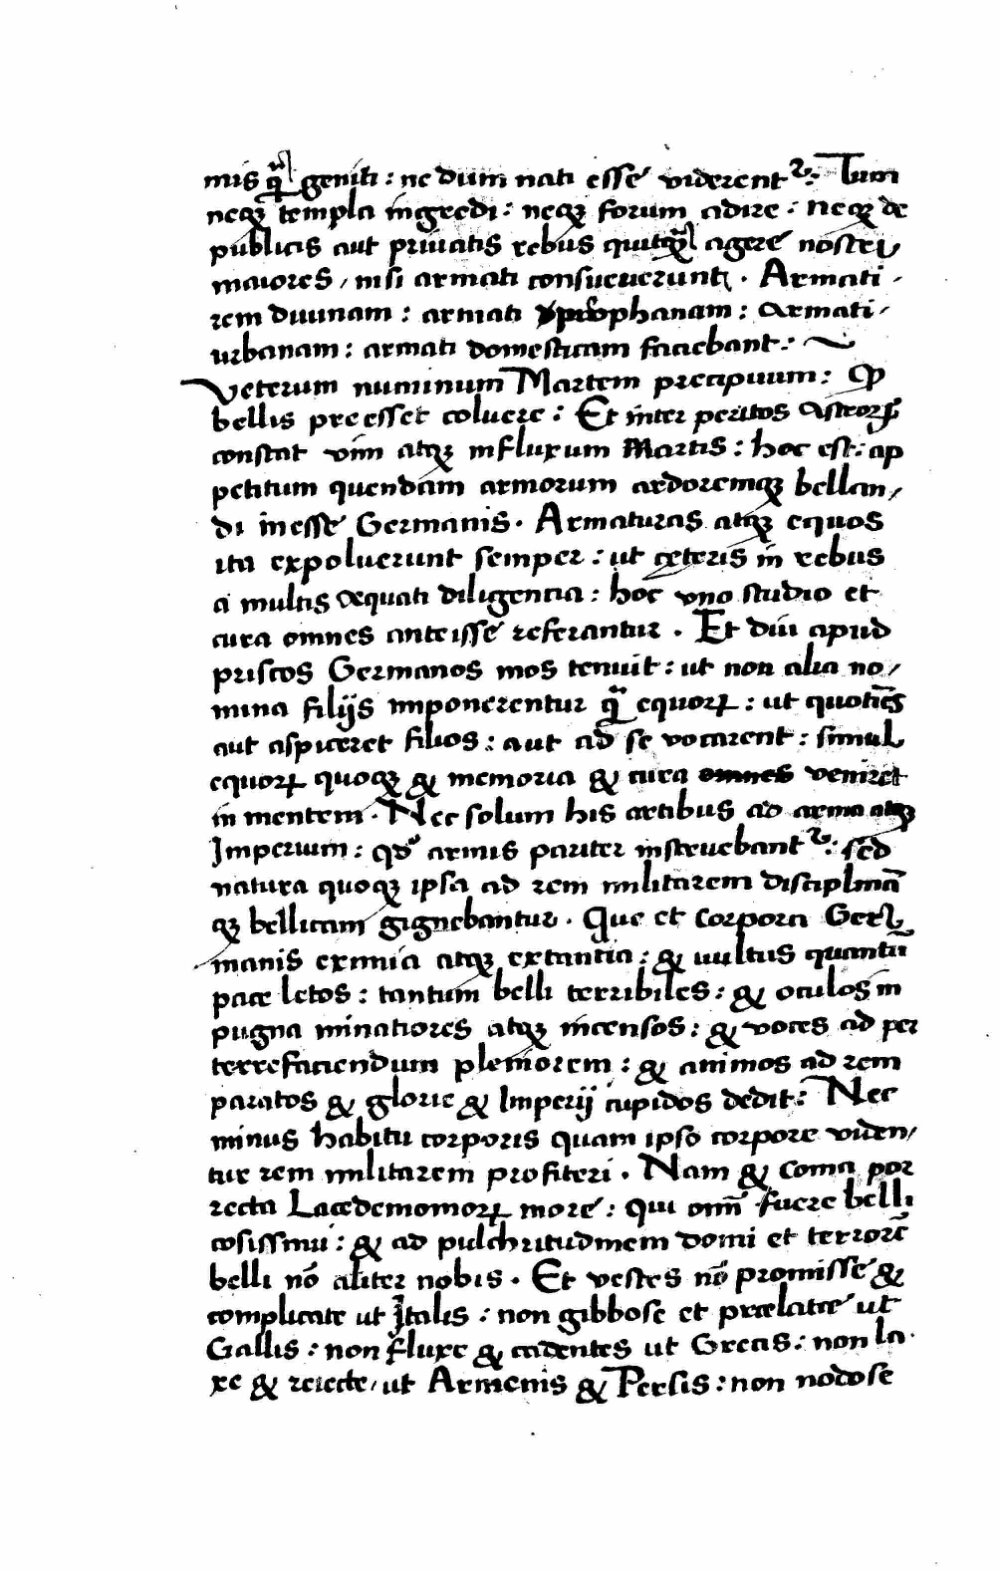 mis qͣ geniti: ne dum nati esse viderentᷣ: Tum
neqꝫ templa ingredi: neqꝫ forum adire: neqꝫ de
publicis aut priuatis rebus quitqͣ agere nostri
maiores, nisi armati consueuerunt. Armati
rem diuinam: armati prophanam: armati
urbanam: armati domesticam faciebant:
Veterum numinum Martem precipuum: Qꝫ
bellis preesset coluere: Et inter peritos Astroꝝ
constat vim atqꝫ influxum Martis: hoc est: ap
petitum quendam armorum ardoremqꝫ bellan,
di inesse Germanis. Armaturas atqꝫ equos
ita expoluerunt semper: ut cęteris in rebus
a multis æquati diligencia: hoc vno studio et
cura omnes anteisse referantur. Et diu apud
priscos Germanos mos tenuit: ut non alia no,
mina filijs imponerentur qͣ equoꝝ: ut quotiēs
aut aspiceret filios: aut ad se vocarent: simul
equoꝝ quoqꝫ & memoria & cura omnes veniret
in mentem. Nec solum his artibus ad arma atqꝫ
Imperium: qd' armis pariter instruebantᷣ: sed
natura quoqꝫ ipsa ad rem militarem disciplinā
qꝫ bellicam gignebantur. Que et corpora Ger
manis eximia atqꝫ extantia: & uultus quantū
pace letos: tantum belli terribiles: & oculos in
pugna minatiores atqꝫ incensos: & voces ad per
terrefaciendum pleniorem: & animos ad rem
paratos & glorie & Imperij cupidos dedit: Nec
minus habitu corporis quam ipso corpore viden,
tur rem militarem profiteri. Nam & coma por
recta Lacedemonioꝝ more: qui om̄ fuere belli
cosissimi: & ad pulchritudinem domi et terrorē
belli nō aliter nobis. Et vestes nō promisse &
complicate ut Italis: non gibbose et prælatæ ut
Gallis: non fluxe & cadentes ut Grecis: non la
xe & reiecte, ut Armenis & Persis: non nodose